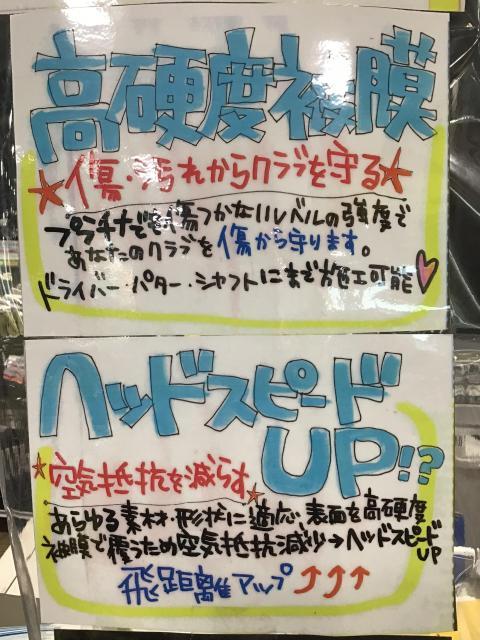 高硬度被膜
★傷・汚れからクラブを守る★
プラチナでも傷つかないレベルの強度で
あなたのクラブを傷から守ります。
ドライバー・パター・シャフトにまで施工可能♡
ヘッドスピード
UP!?
★空気抵抗を減らす★
あらゆる素材・形状に適応 表面を高硬度
被膜で覆うため空気抵抗減少→ヘッドスピードUP
飛距離アップ↑↑↑